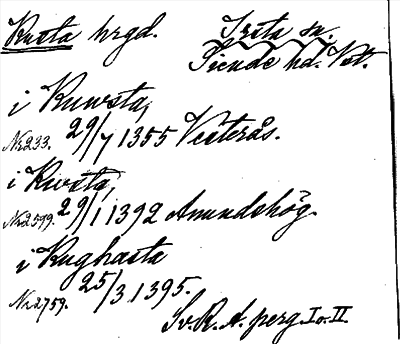 Kusta hrgd. Irsta sn.
Siende hd. Vst.
i Ruwsta,
Nr 233. 29/7 1355 Vesterås.
i Rwsta,
Nr 2599. 29/1 1392 Amundshög.
i Rughasta
Nr 2759. 25/3 1395.
Sv. R. A. perg. I o. II.